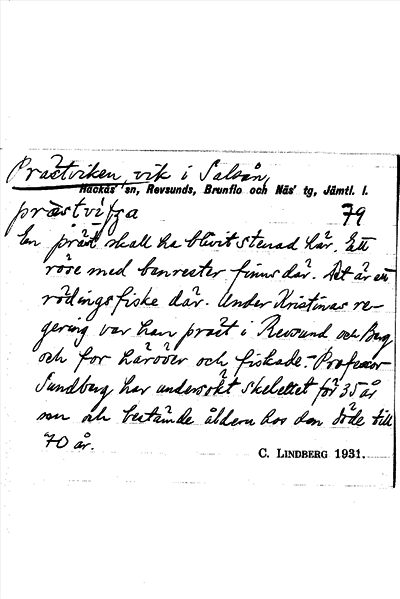 Prästviken, vik i Salsån,
Hackås sn, Revsunds, Brunflo och Näs' tg, Jämtl. l.
prästvitja
79
En präst skall ha blivit stenad här. Ett
röse med benrester finns där. Det är ett
rödingsfiske där. Under Kristinas re-
gering var han präst i Revsund och Berg
och for häröver och fiskade.- Professor
Sundberg har undersökt skelettet för 35 år
sen och bestämde åldern hos den döde till
70 år.
C. LINDBERG 1931.